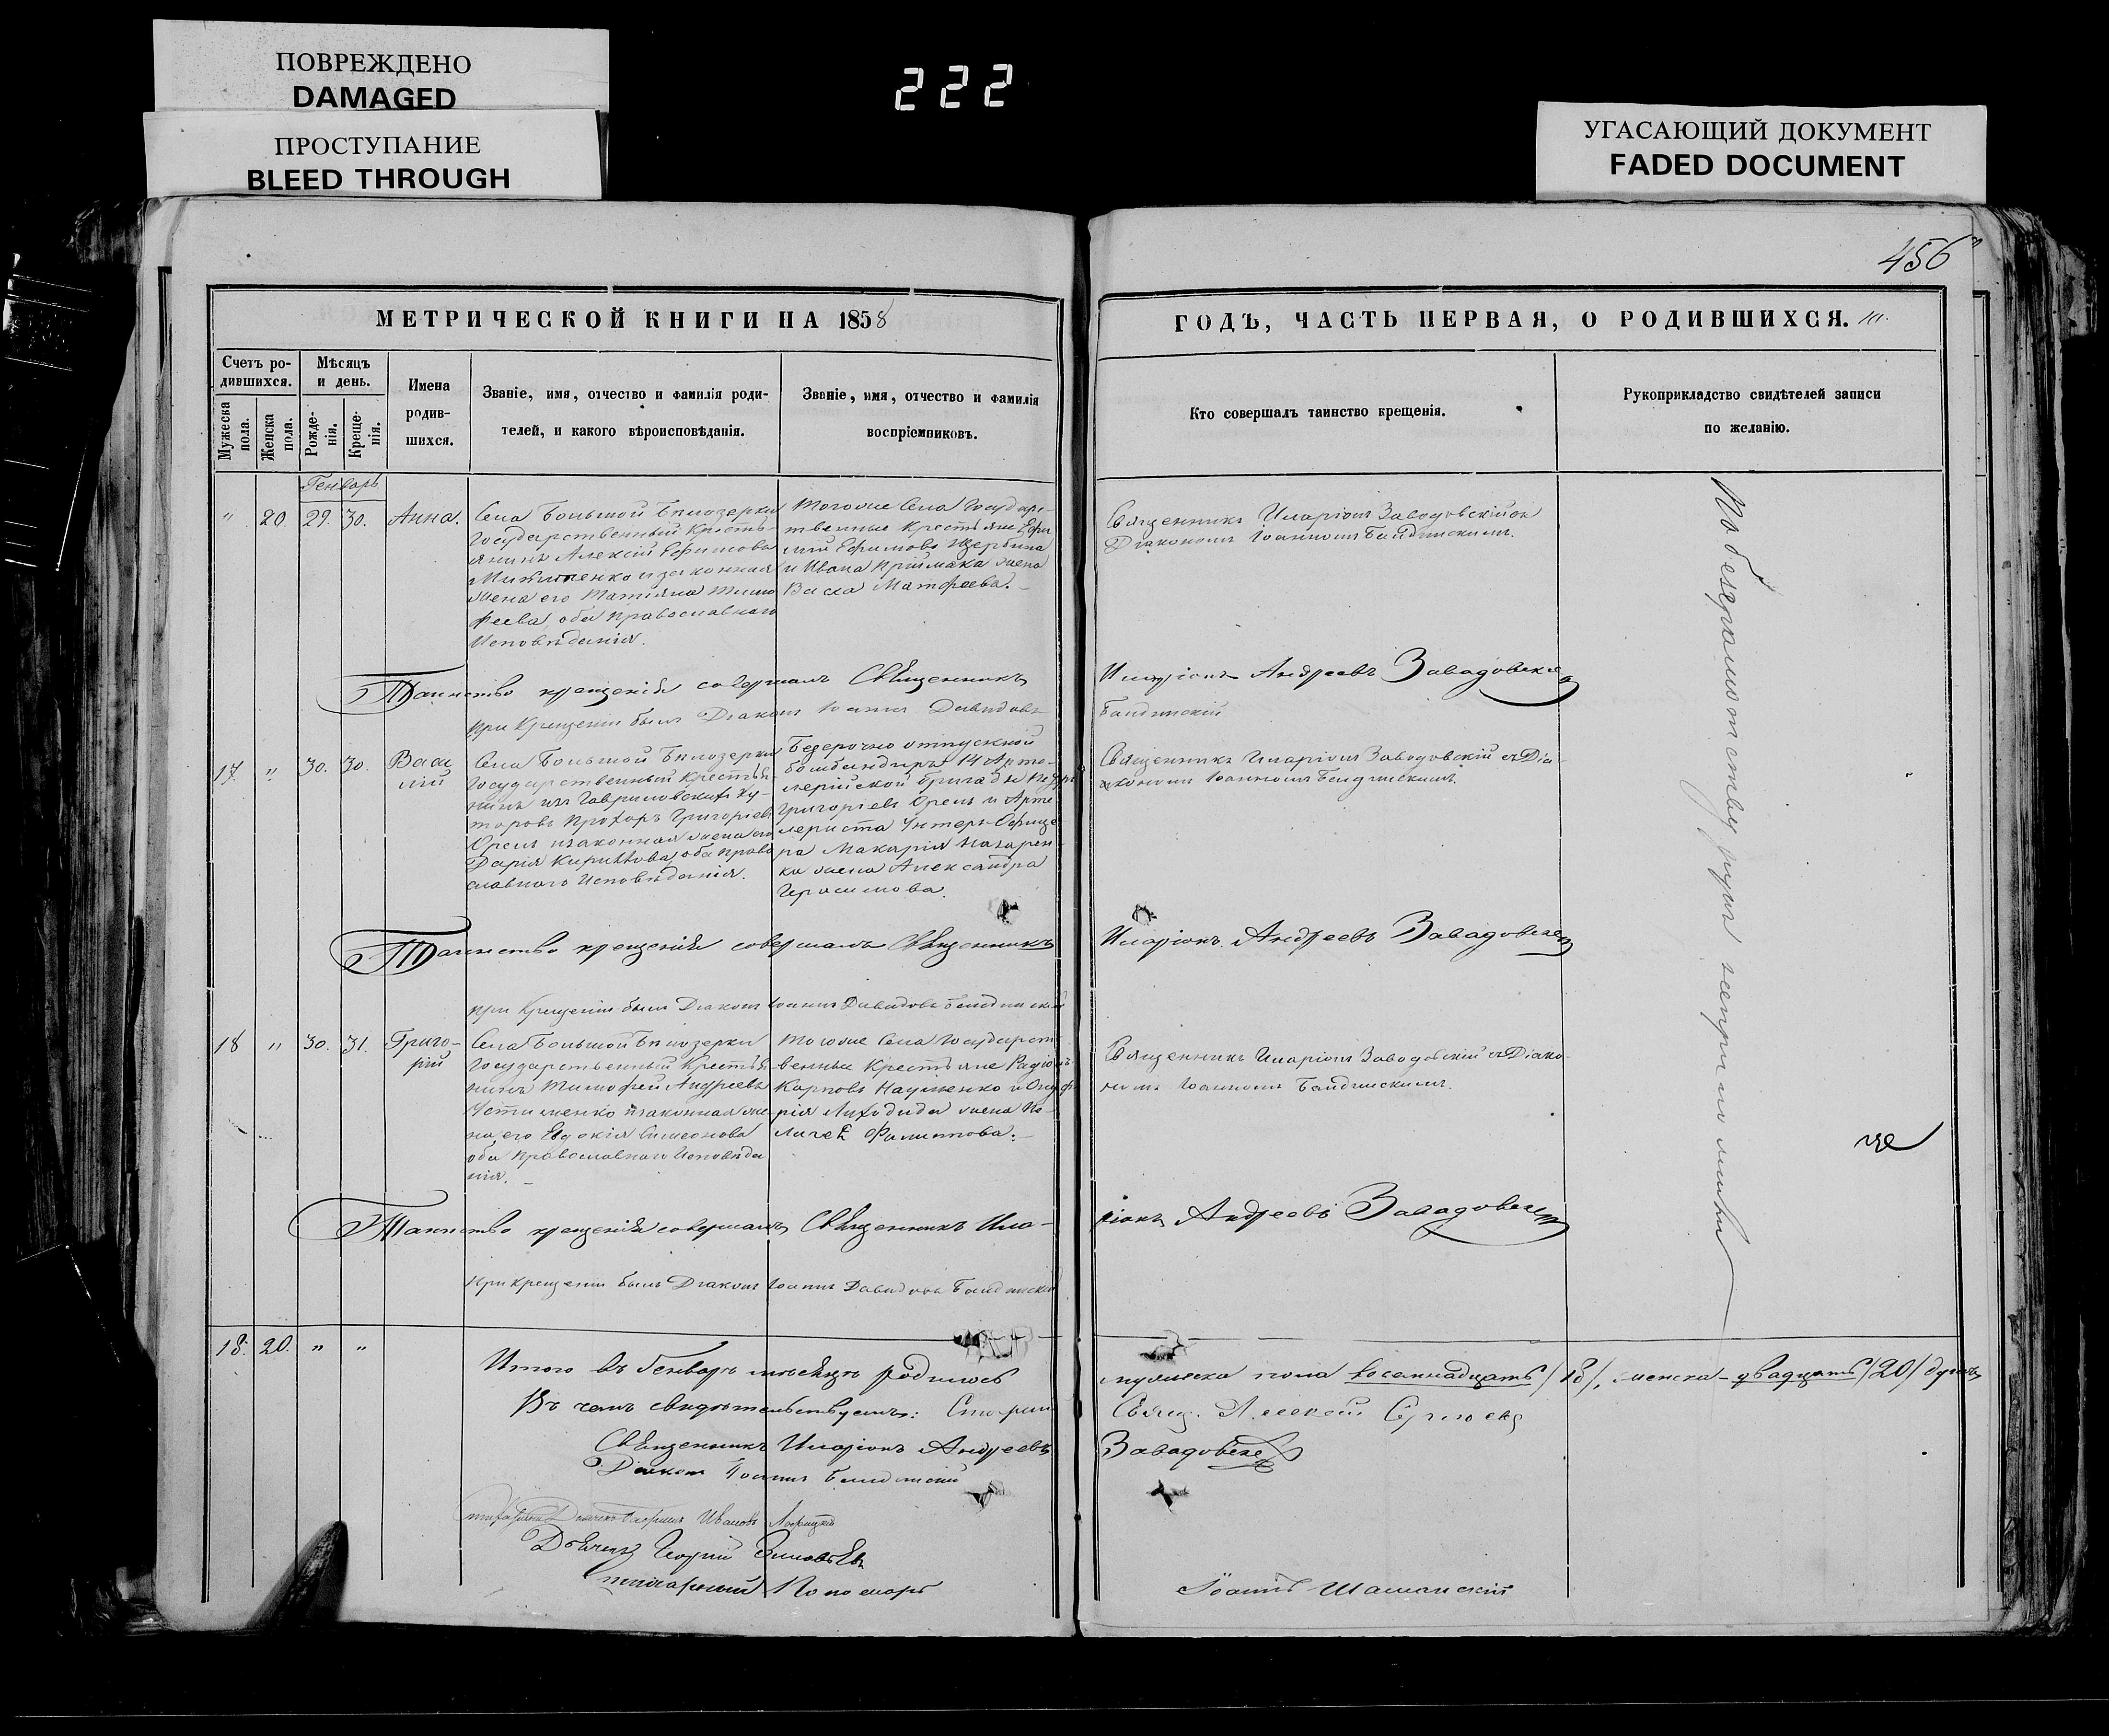 ПОВРЕЖДЕНО
DAMAGED
ПРОСТУПАНИЕ
BLEED THROUGH
222
УГАСАЮЩИЙ ДОКУМЕНТ
FADED DOCUMENT
456
МЕТРИЧЕСКОЙ КНИГИ НА 1858
ГОДЪ, ЧАСТЬ ПЕРВАЯ, О РОДИВШИХСЯ.
Счетъ ро-
дившихся.
Мужеска
пола.
Женска
пола.
Мѣсяцъ
и день.
Рожде-
нія.
Креще-
нія.
Имена
родив-
шихся.
Званіе, имя, отчество и фамилія роди-
телей, и какого вѣроисповѣданія.
Званіе, имя, отчество и фамилія
воспріемниковъ.
Кто совершалъ таинство крещенія.
Рукоприкладство свидѣтелей записи
по желанію.
Генварь
" 20. 29. 30. Анна.
Села Большой Бѣлозерки
Государственный Кресть-
янинъ Алексій Ефимовъ
и законная
жена его Татіяна Тимо
феева, оба православнаго
Исповѣданія.
Тогоже Села Государс-
твенные Крестьяне
Ефимовъ Щербина
и Ивана Пріймака жена
Васса Матфеева.
Священникъ Иларіонъ Заводовскій съ
Діакономъ Іоанномъ
Таинство крещенія совершалъ Священникъ
Иларіонъ Андреевъ Завадовскій
при Крещеніи былъ Діаконъ Іоаннъ Давидовъ
17. " 30. 30. Васи
лій
Села Большой Бѣлозерки
Государственный Крестья-
нинъ изъ Гавриловскихъ Ху-
торовъ Прохоръ Григорьевъ
Орелъ и законная жена его
Дарія Кириллова, оба право
славнаго Исповѣданія.
Безсрочно отпускной
бомбандиръ 14 Арти-
лерійской бригады
Григоріевъ Орелъ и Арти
лериста Унтеръ-Офице-
ра Макарія Назарен-
ка жена Александра
Герасимова.
Священникъ Иларіонъ Заводовскій съ Діа-
кономъ Іоанномъ
Таинство крещенія совершалъ Священникъ
Иларіонъ Андреевъ Завадовскій
при Крещеніи былъ Діаконъ Іоаннъ Давидовъ
18 " 30. 31. Григо-
рій
Села Большой Бѣлозерки
Государственный Крестья-
нинъ Тимофей Андреевъ
Устименко и законная же-
на его Евдокія Симеонова
оба православнаго Исповѣда
нія.
Тогоже Села Государст-
венные Крестьяне Радіонъ
Карповъ и
жена Пе-
лагея Филиппова.
Священникъ Иларіонъ Заводовскій съ Діако-
номъ Іоанномъ
Таинство крещенія совершалъ Священникъ Ила-
ріонъ Андреевъ Завадовскій
При крещеніи былъ Діаконъ Іоаннъ Давидовъ
По безграмотству рукъ неприложили
18. 20. " "
Итого въ Генварѣ мѣсяцѣ родилось
мужеска пола восемнадцать /18/, женска - двадцать /20/ душъ
Въ чемъ свидѣтельствуемъ:
Свящ. Алексій
Священникъ Иларіонъ Андреевъ
Завадовскій
Діаконъ Іоаннъ
Ивановъ
Дьячекъ Георгій Зиновьевъ
Пономарь
Іоаннъ Шаманскій